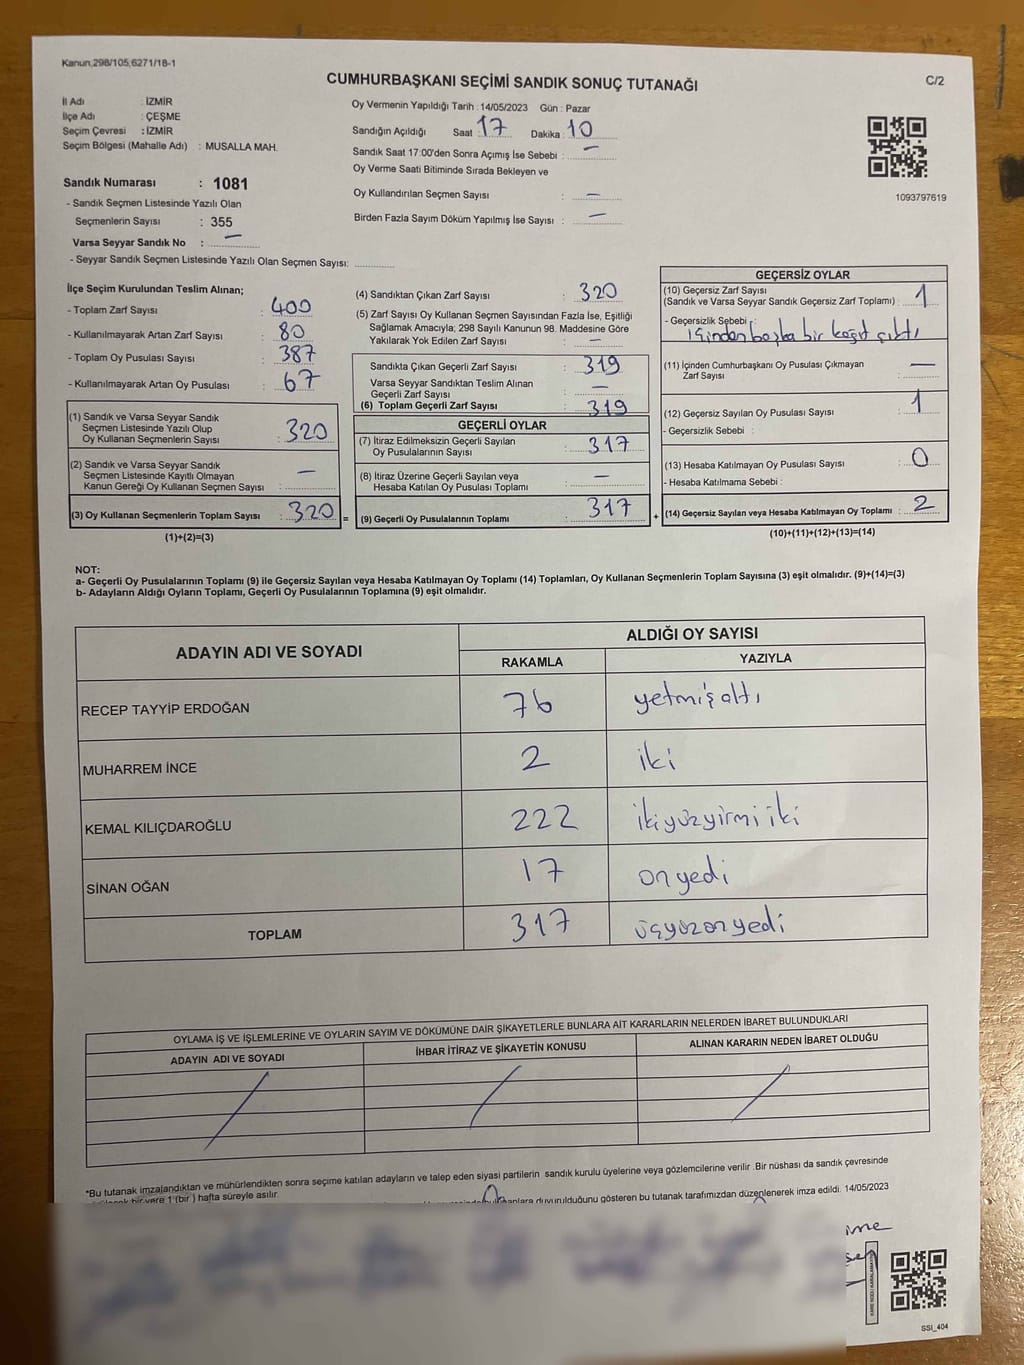 Kanun,298/105,6271/18-1
CUMHURBAŞKANI SEÇİMİ SANDIK SONUÇ TUTANAĞI
C/2
İl Adı : İZMİR
İlçe Adı : ÇEŞME
Seçim Çevresi : İZMİR
Seçim Bölgesi (Mahalle Adı) : MUSALLA MAH.
Sandık Numarası : 1081
- Sandık Seçmen Listesinde Yazılı Olan
Seçmenlerin Sayısı : 355
Varsa Seyyar Sandık No : –
- Seyyar Sandık Seçmen Listesinde Yazılı Olan Seçmen Sayısı:
Oy Vermenin Yapıldığı Tarih : 14/05/2023 Gün : Pazar
Sandığın Açıldığı Saat : 17 Dakika : 10
Sandık Saat 17:00'den Sonra Açımış İse Sebebi : –
Oy Verme Saati Bitiminde Sırada Bekleyen ve
Oy Kullandırılan Seçmen Sayısı : –
Birden Fazla Sayım Döküm Yapılmış İse Sayısı : –
1093797619
İlçe Seçim Kurulundan Teslim Alınan;
- Toplam Zarf Sayısı : 400
- Kullanılmayarak Artan Zarf Sayısı : 80
- Toplam Oy Pusulası Sayısı : 387
- Kullanılmayarak Artan Oy Pusulası : 67
(1) Sandık ve Varsa Seyyar Sandık
Seçmen Listesinde Yazılı Olup
Oy Kullanan Seçmenlerin Sayısı : 320
(2) Sandık ve Varsa Seyyar Sandık
Seçmen Listesinde Kayıtlı Olmayan
Kanun Gereği Oy Kullanan Seçmen Sayısı : –
(3) Oy Kullanan Seçmenlerin Toplam Sayısı : 320 =
(1)+(2)=(3)
(4) Sandıktan Çıkan Zarf Sayısı : 320
(5) Zarf Sayısı Oy Kullanan Seçmen Sayısından Fazla İse, Eşitliği
Sağlamak Amacıyla; 298 Sayılı Kanunun 98. Maddesine Göre
Yakılarak Yok Edilen Zarf Sayısı : –
Sandıkta Çıkan Geçerli Zarf Sayısı : 319
Varsa Seyyar Sandıktan Teslim Alınan
Geçerli Zarf Sayısı : –
(6) Toplam Geçerli Zarf Sayısı : 319
GEÇERLİ OYLAR
(7) İtiraz Edilmeksizin Geçerli Sayılan
Oy Pusulalarının Sayısı : 317
(8) İtiraz Üzerine Geçerli Sayılan veya
Hesaba Katılan Oy Pusulası Toplamı : –
(9) Geçerli Oy Pusulalarının Toplamı : 317 +
GEÇERSİZ OYLAR
(10) Geçersiz Zarf Sayısı
(Sandık ve Varsa Seyyar Sandık Geçersiz Zarf Toplamı) : 1
- Geçersizlik Sebebi :
içinden başka bir kağıt çıktı
(11) İçinden Cumhurbaşkanı Oy Pusulası Çıkmayan
Zarf Sayısı : –
(12) Geçersiz Sayılan Oy Pusulası Sayısı : 1
- Geçersizlik Sebebi :
(13) Hesaba Katılmayan Oy Pusulası Sayısı : 0
- Hesaba Katılmama Sebebi :
(14) Geçersiz Sayılan veya Hesaba Katılmayan Oy Toplamı : 2
(10)+(11)+(12)+(13)=(14)
NOT:
a- Geçerli Oy Pusulalarının Toplamı (9) ile Geçersiz Sayılan veya Hesaba Katılmayan Oy Toplamı (14) Toplamları, Oy Kullanan Seçmenlerin Toplam Sayısına (3) eşit olmalıdır. (9)+(14)=(3)
b- Adayların Aldığı Oyların Toplamı, Geçerli Oy Pusulalarının Toplamına (9) eşit olmalıdır.
ADAYIN ADI VE SOYADI ALDIĞI OY SAYISI
RAKAMLA YAZIYLA
RECEP TAYYİP ERDOĞAN 76 yetmişaltı
MUHARREM İNCE 2 iki
KEMAL KILIÇDAROĞLU 222 ikiyüzyirmiiki
SİNAN OĞAN 17 onyedi
TOPLAM 317 üçyüzonyedi
OYLAMA İŞ VE İŞLEMLERİNE VE OYLARIN SAYIM VE DÖKÜMÜNE DAİR ŞİKAYETLERLE BUNLARA AİT KARARLARIN NELERDEN İBARET BULUNDUKLARI
ADAYIN ADI VE SOYADI İHBAR İTİRAZ VE ŞİKAYETİN KONUSU ALINAN KARARIN NEDEN İBARET OLDUĞU
*Bu tutanak imzalandıktan ve mühürlendikten sonra seçime katılan adayların ve talep eden siyasi partilerin sandık kurulu üyelerine veya gözlemcilerine verilir .Bir nüshası da sandık çevresinde
bir yere 1 (bir ) hafta süreyle asılır.
duyurulduğunu gösteren bu tutanak tarafımızdan düzenlenerek imza edildi. 14/05/2023
SSİ_404